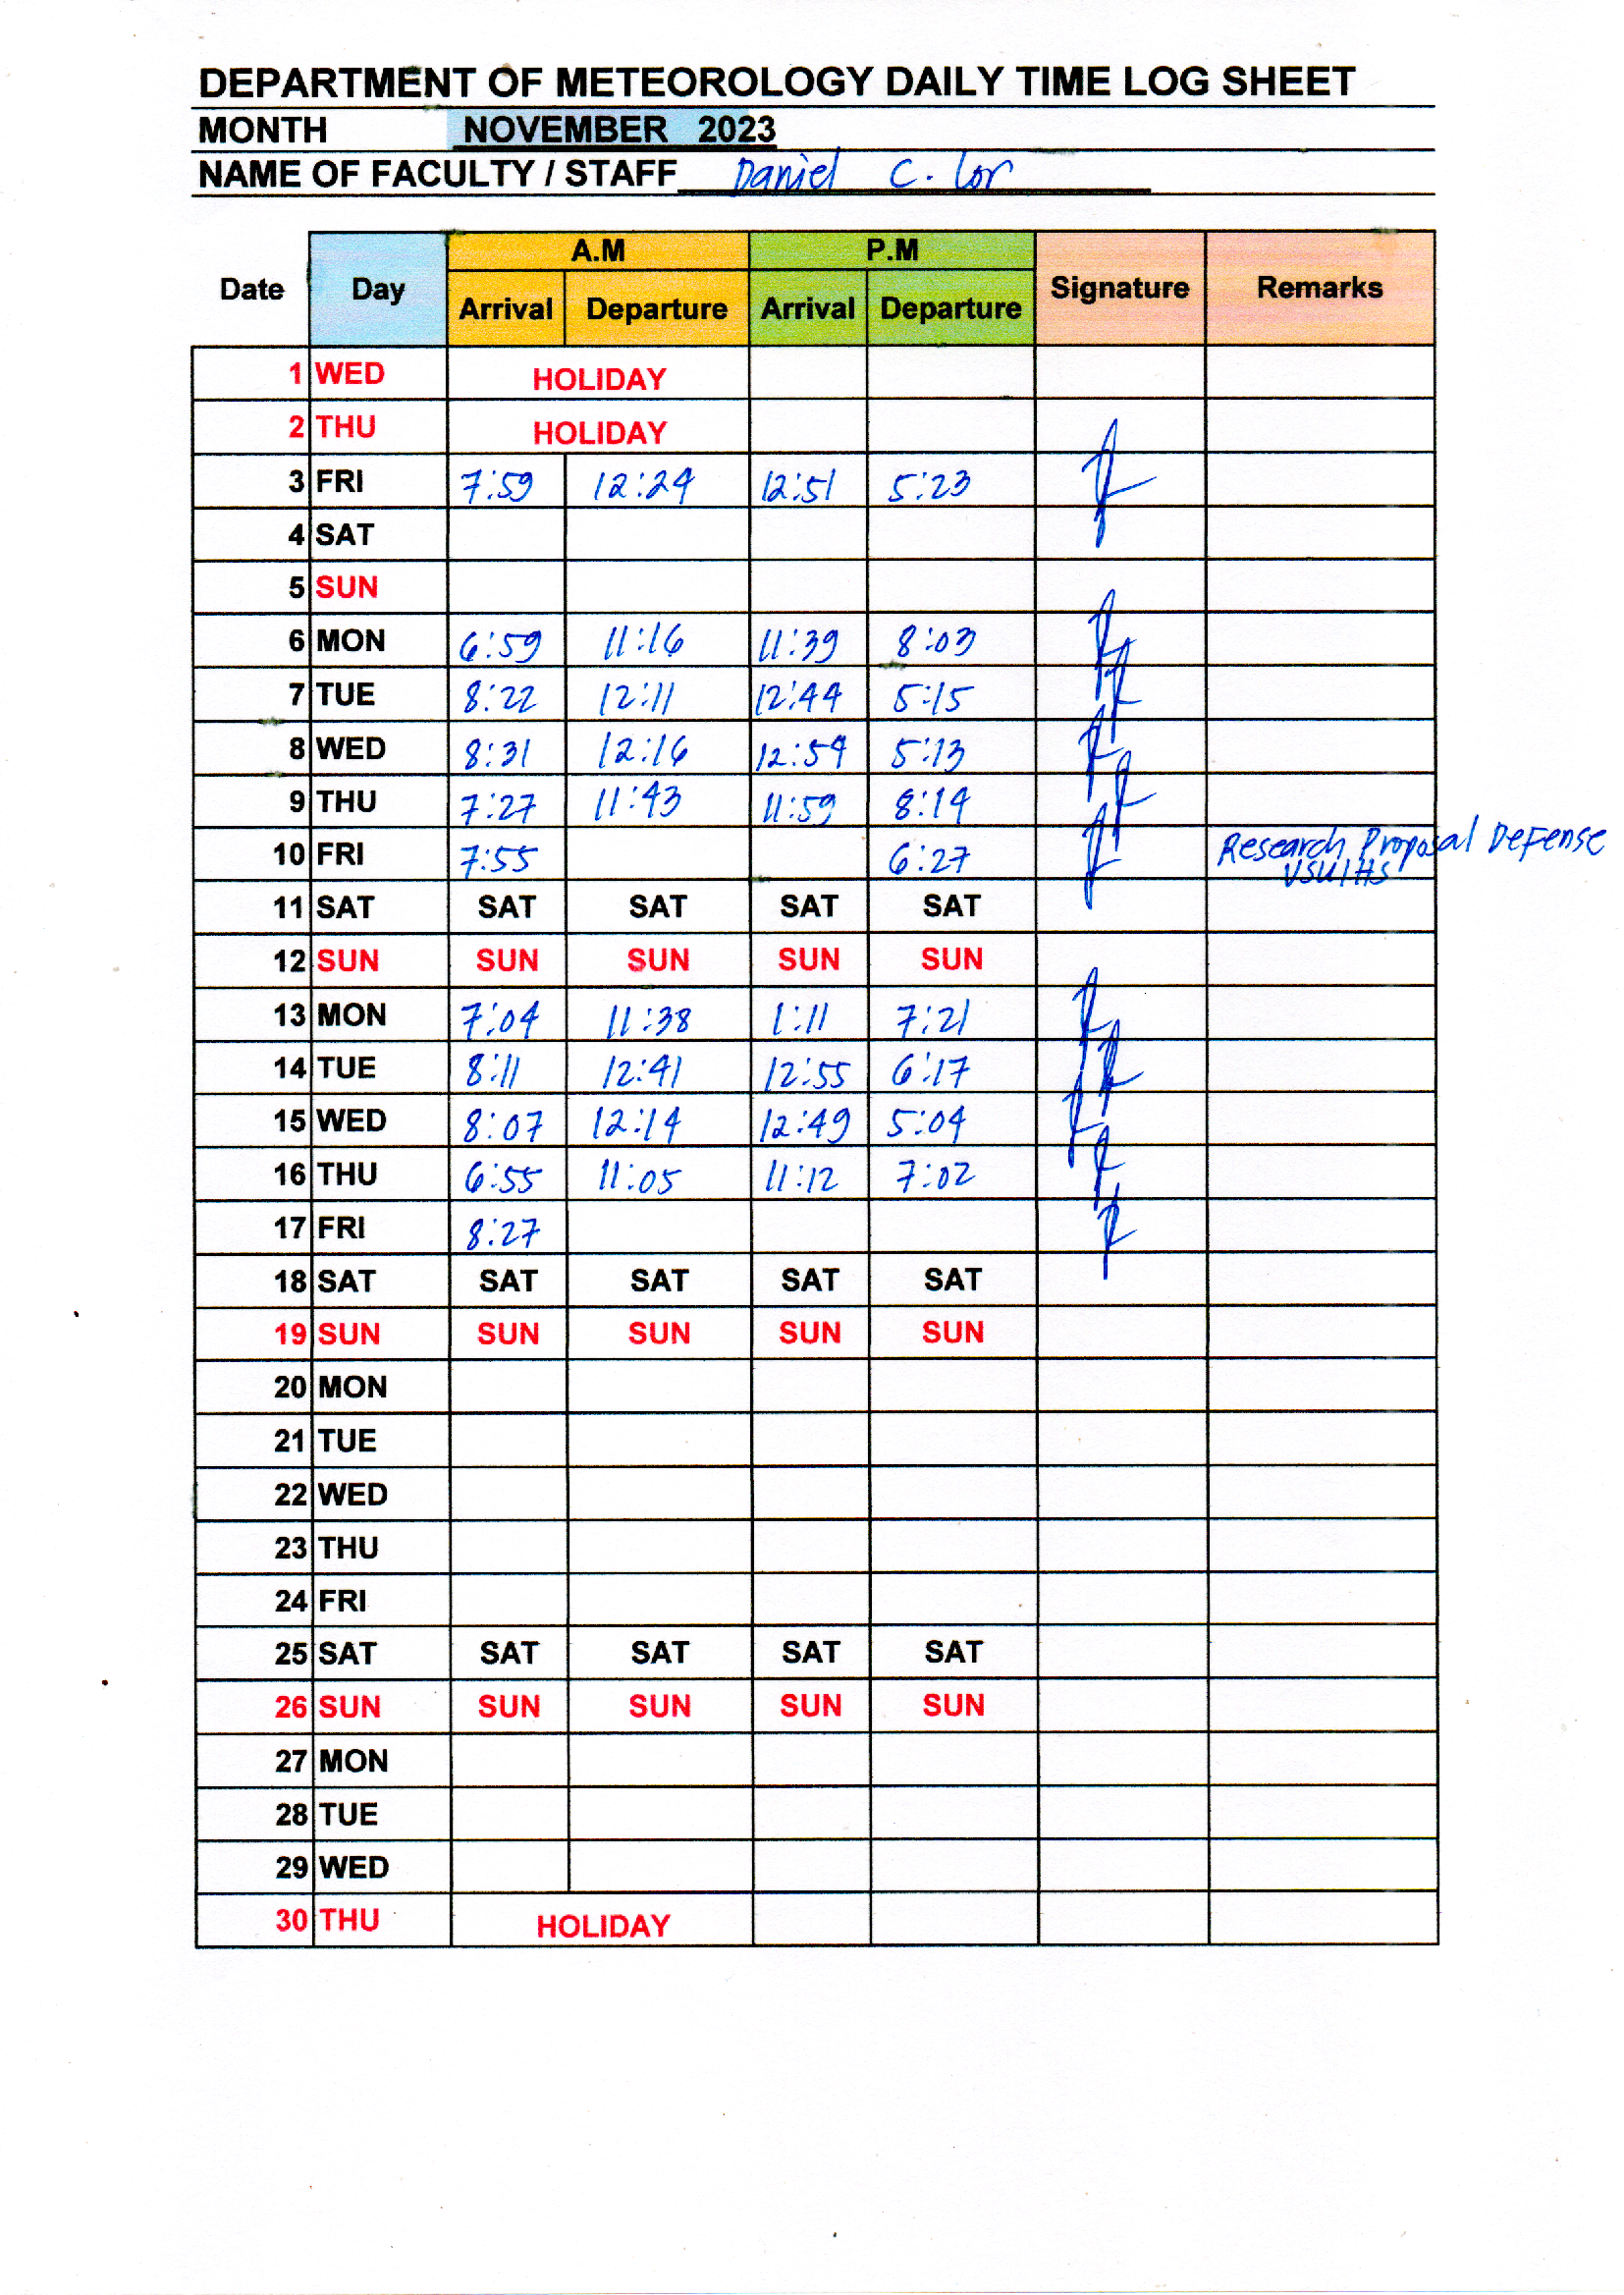 DEPARTMENT OF METEOROLOGY DAILY TIME LOG SHEET
MONTH NOVEMBER 2023
NAME OF FACULTY / STAFF Daniel C. Lor
A.M P.M
Date Day Signature Remarks
Arrival Departure Arrival Departure
1 WED HOLIDAY
2 THU HOLIDAY
3 FRI 7:59 12:24 12:51 5:23
4 SAT
5 SUN
6 MON 6:59 11:16 11:39 8:03
7 TUE 8:22 12:11 12:44 5:15
8 WED 8:31 12:16 12:54 5:13
9 THU 7:27 11:43 11:59 8:14
10 FRI 7:55 6:27 Research Proposal Defense
VSUIHS
11 SAT SAT SAT SAT SAT
12 SUN SUN SUN SUN SUN
13 MON 7:04 11:38 1:11 7:21
14 TUE 8:11 12:41 12:55 6:17
15 WED 8:07 12:14 12:49 5:04
16 THU 6:55 11:05 11:12 7:02
17 FRI 8:27
18 SAT SAT SAT SAT SAT
19 SUN SUN SUN SUN SUN
20 MON
21 TUE
22 WED
23 THU
24 FRI
25 SAT SAT SAT SAT SAT
26 SUN SUN SUN SUN SUN
27 MON
28 TUE
29 WED
30 THU HOLIDAY